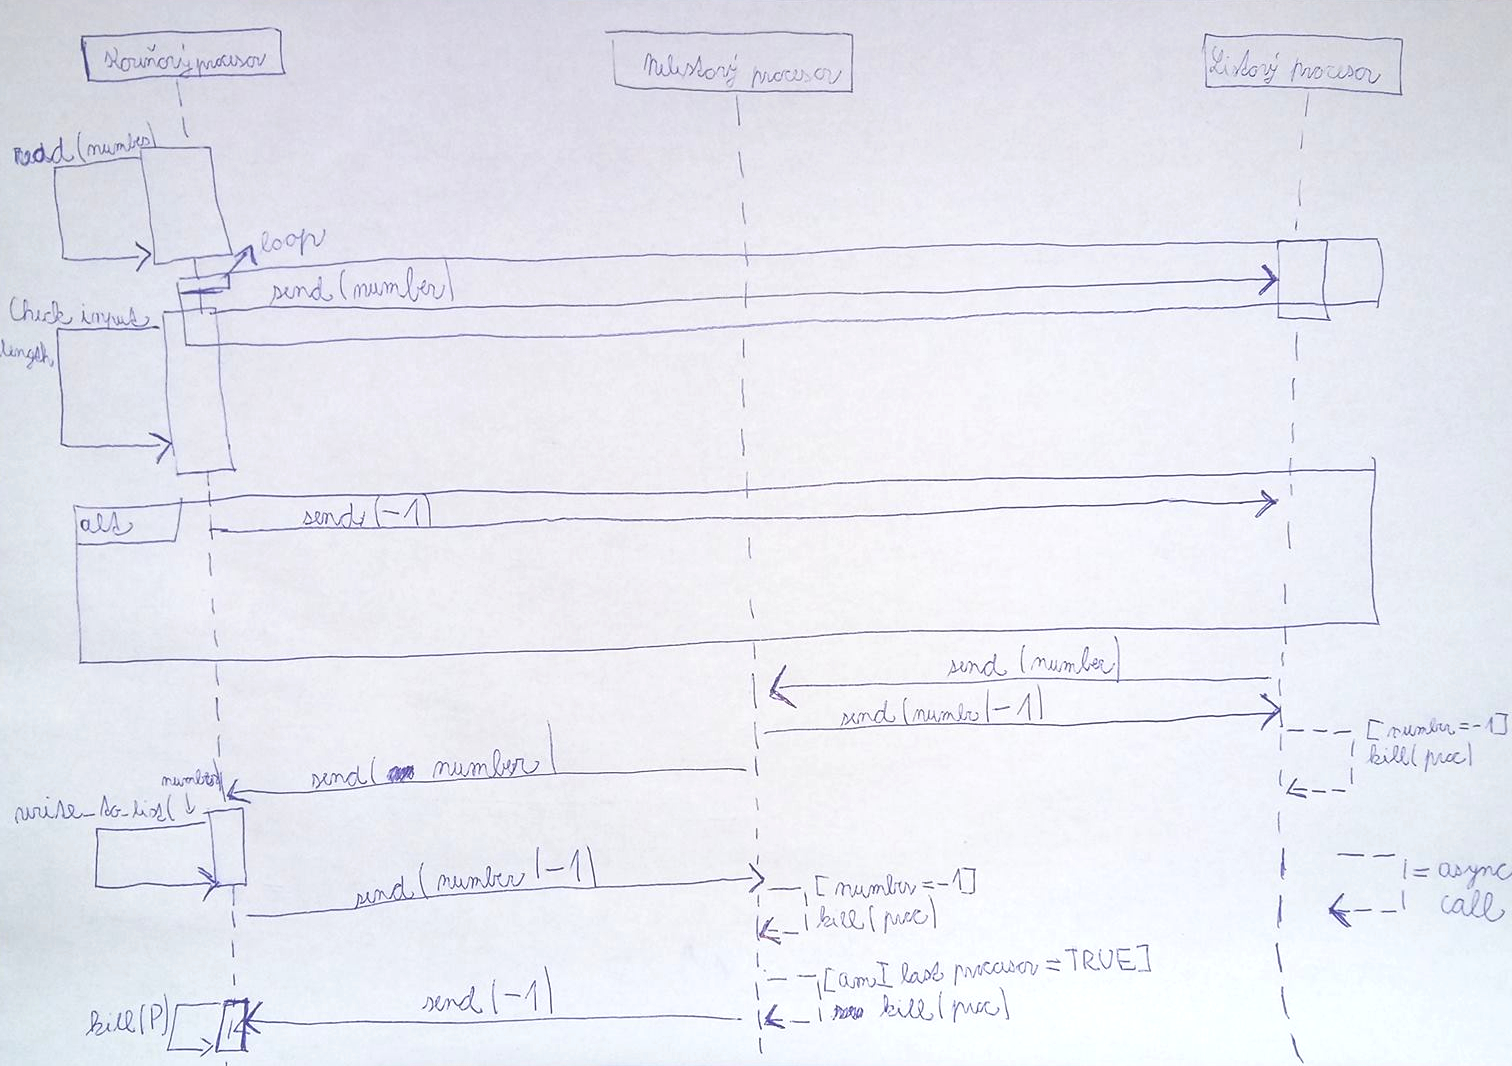 Kořňový procesor
Nelistový procesor
Listový procesor
read(number)
loop
send(number)
Check input
length
alt
send(-1)
send(number)
send(number|-1)
[number=-1]
kill(proc)
send( number)
number)
write_to_list(↓
send(number|-1)
[number=-1]
kill(proc)
= async
call
[amI last procesor=TRUE]
kill(proc)
send(-1)
kill(P)